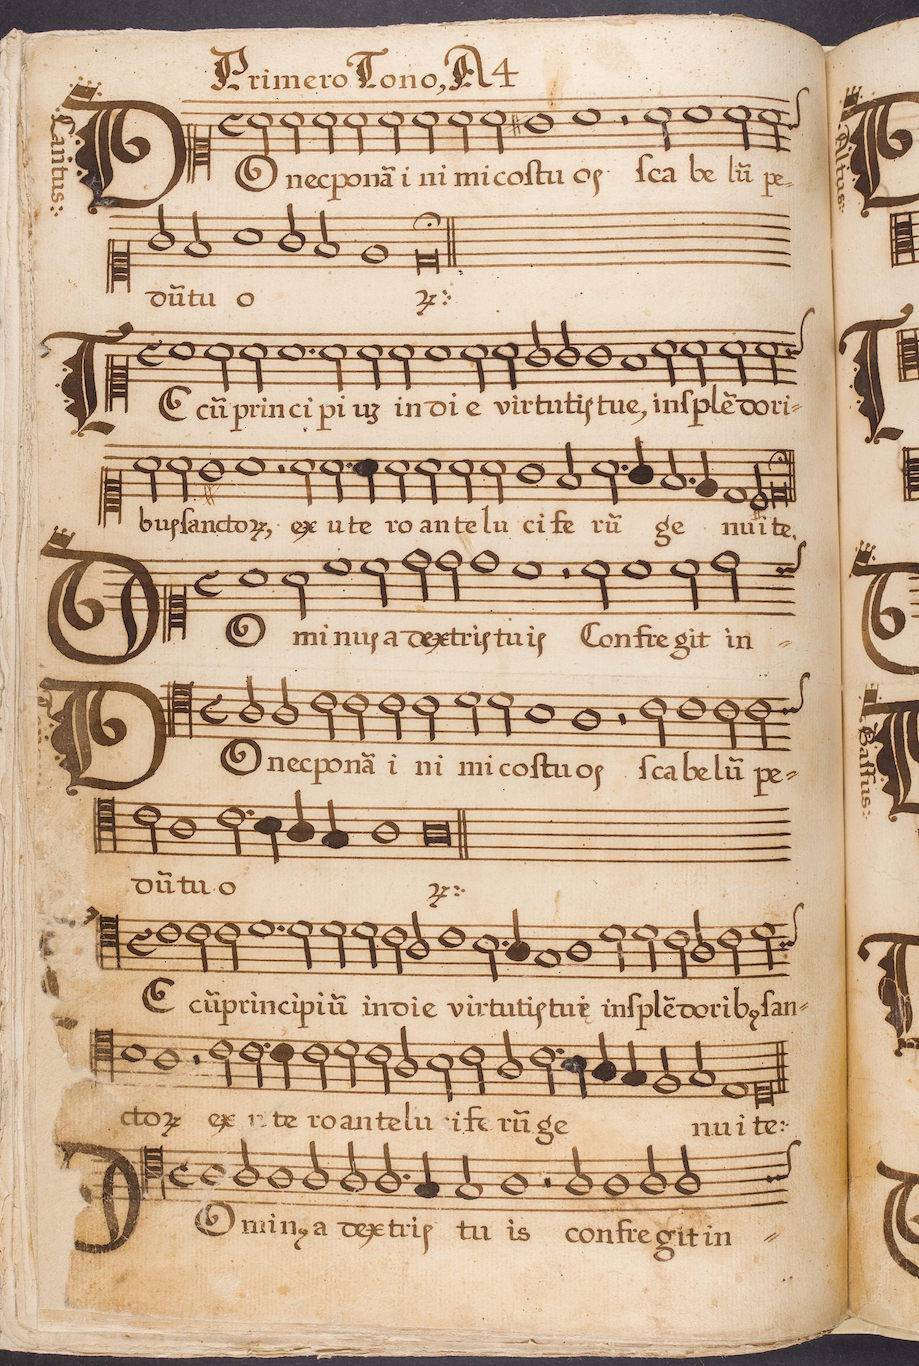 Primero Tono, A4
Cantus:
Donec ponã inimicos tuos scabelũ pe-
dũ tuoꝝ:
Tecũ principiuʒ in die virtutis tue, in splẽdori-
bus sanctoꝝ, ex utero ante luciferũ genui te.
Dominus a dextris tuis Confregit in =
Donec ponã inimicos tuos scabelũ pe=
dũ tuoꝝ:
Tecũ principiũ in die virtutis tuę in splẽdoribꝰ san=
ctoꝝ ex utero ante luciferũ genui te:
Dominꝰ a dextris tuis confregit in =
Altus:
Bassus: